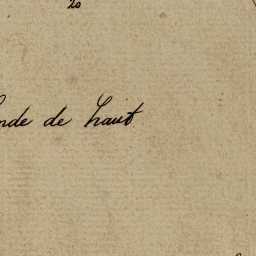 20
nde de haut